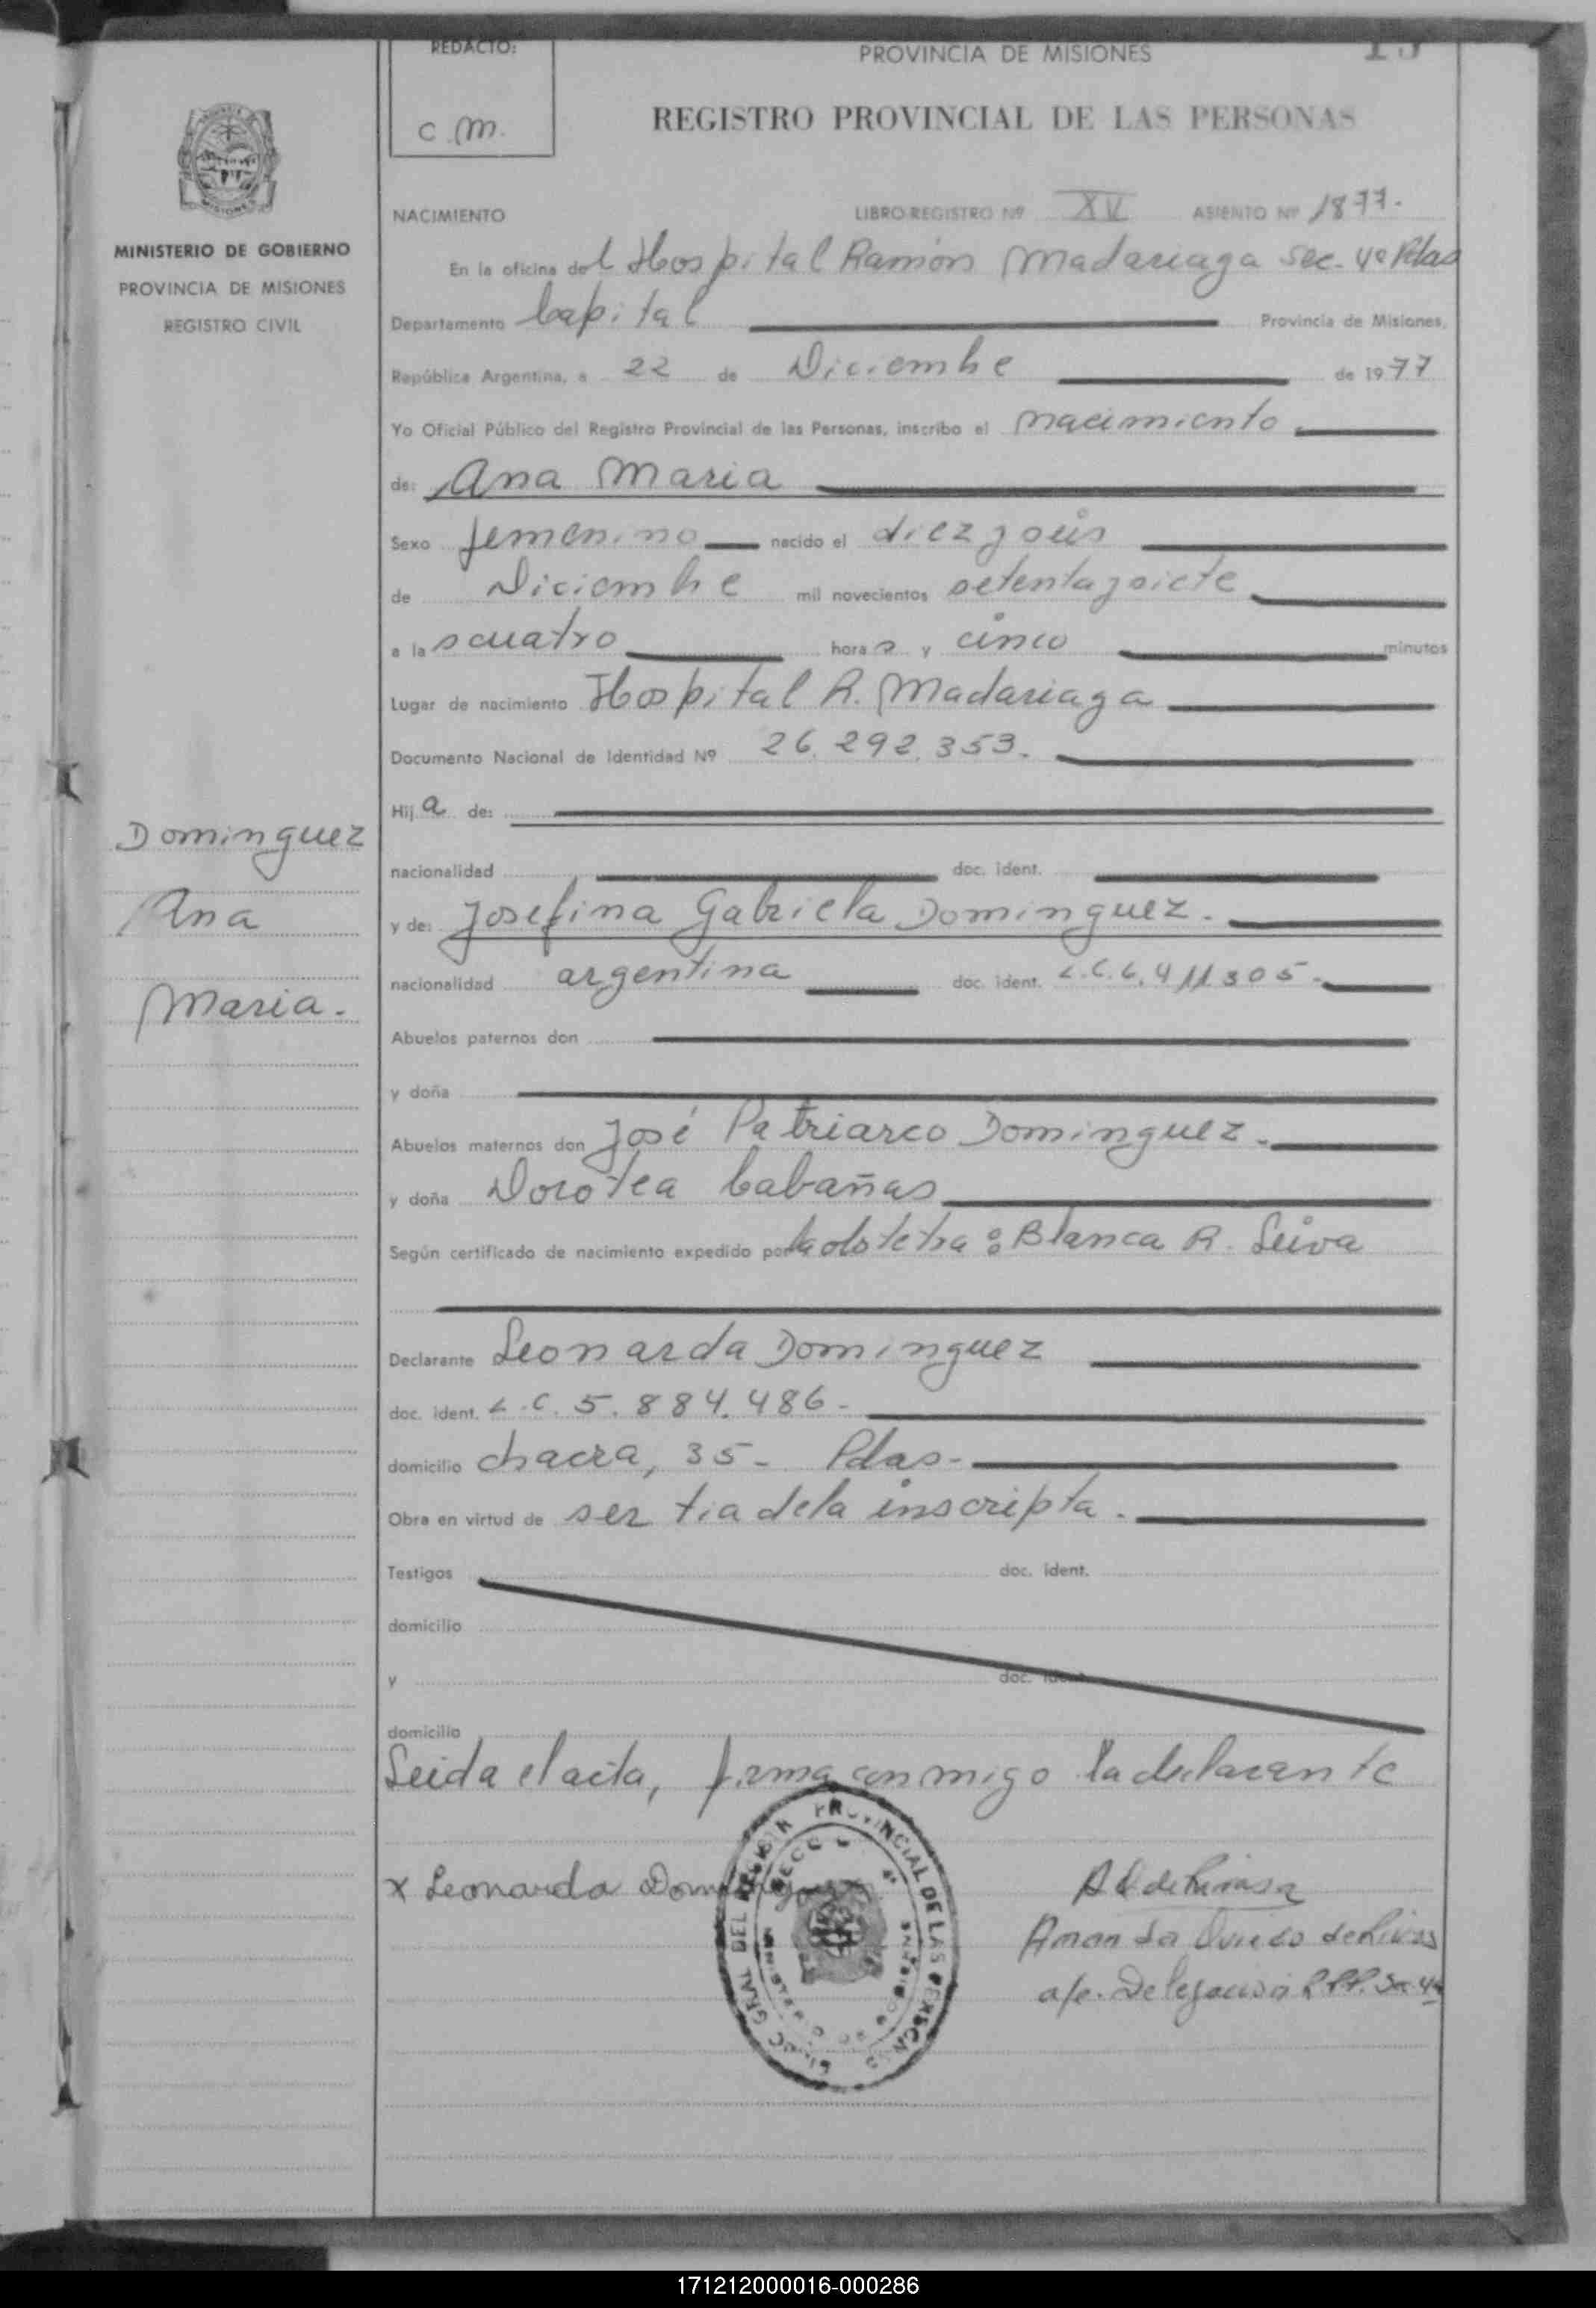 REDACTO:
c.m.
PROVINCIA DE MISIONES
REGISTRO PROVINCIAL DE LAS PERSONAS
MINISTERIO DE GOBIERNO
PROVINCIA DE MISIONES
REGISTRO CIVIL
NACIMIENTO LIBRO REGISTRO Nº XV ASIENTO Nº 1877.
En la oficina del Hospital Ramón Madariaga Sec. 4º Pdas
Departamento Capital Provincia de Misiones,
República Argentina, a 22 de Diciembre de 1977
Yo Oficial Público del Registro Provincial de las Personas, inscribo el nacimiento
de: Ana Maria
Sexo femenino nacido el diez y seis
de Diciembre mil novecientos setenta y siete
a las cuatro horas y cinco minutos
Lugar de nacimiento Hospital R. Madariaga
Documento Nacional de Identidad Nº 26.292.353.
Hija de:
nacionalidad doc. ident.
y de: Josefina Gabriela Dominguez.
nacionalidad argentina doc. ident. L.C. 6.411305.
Abuelos paternos don
y doña
Abuelos maternos don José Patriarco Dominguez.
y doña Dorotea Cabañas
Según certificado de nacimiento expedido por la obstetra: Blanca R. Leiva
Declarante Leonarda Dominguez
doc. ident. L.C. 5.884.486-
domicilio chacra, 35- Pdas-
Obra en virtud de ser tia de la inscripta.
Testigos doc. ident.
domicilio
y doc. ident.
domicilio
Leida el acta, firma conmigo la declarante
x Leonarda Dominguez
Amanda Oviedo de Rivas
a/c. Delegación R.P.P. Sec 4ª
DIREC. GRAL DEL REGISTR PROVINCIAL DE LAS PERSONAS
SECC 4ª
MINISTERIO DE GOBIERNO
Dominguez
Ana
Maria.
171212000016-000286